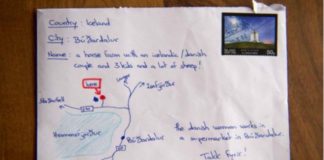 Country: Iceland
City: Búðardalur
Name: a horse farm with an icelandic/danish
couple and 3 kids and a lot of sheep!
here
Ísafjörður
Hvammsfjörður
Búðardalur
the danish woman works in
a supermarket in Búðardalur.
Takk fyrir!